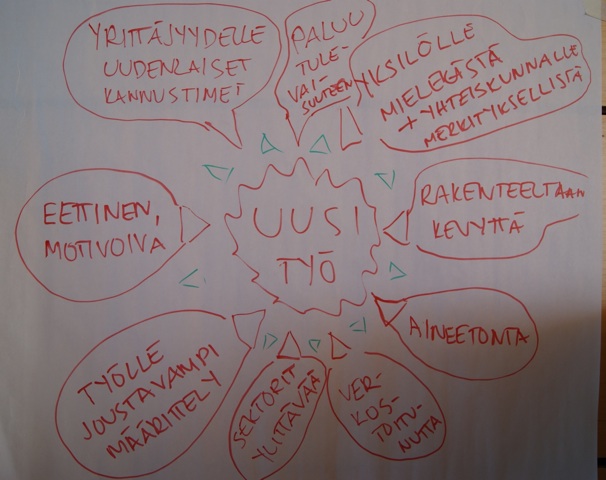 YRITTÄJYYDELLE
UUDENLAISET
KANNUSTIMET
PALUU
TULE-
VAI-
SUUTEEN
YKSILÖLLE
MIELEKÄSTÄ
+ YHTEISKUNNALLE
MERKITYKSELLISTÄ
EETTINEN,
MOTIVOIVA
UUSI
TYÖ
RAKENTEELTAAN
KEVYTTÄ
AINEETONTA
TYÖLLE
JOUSTAVAMPI
MÄÄRITTELY
SEKTORIT
YLITTÄVÄÄ
VER-
KOS-
TOITU-
NUTTA